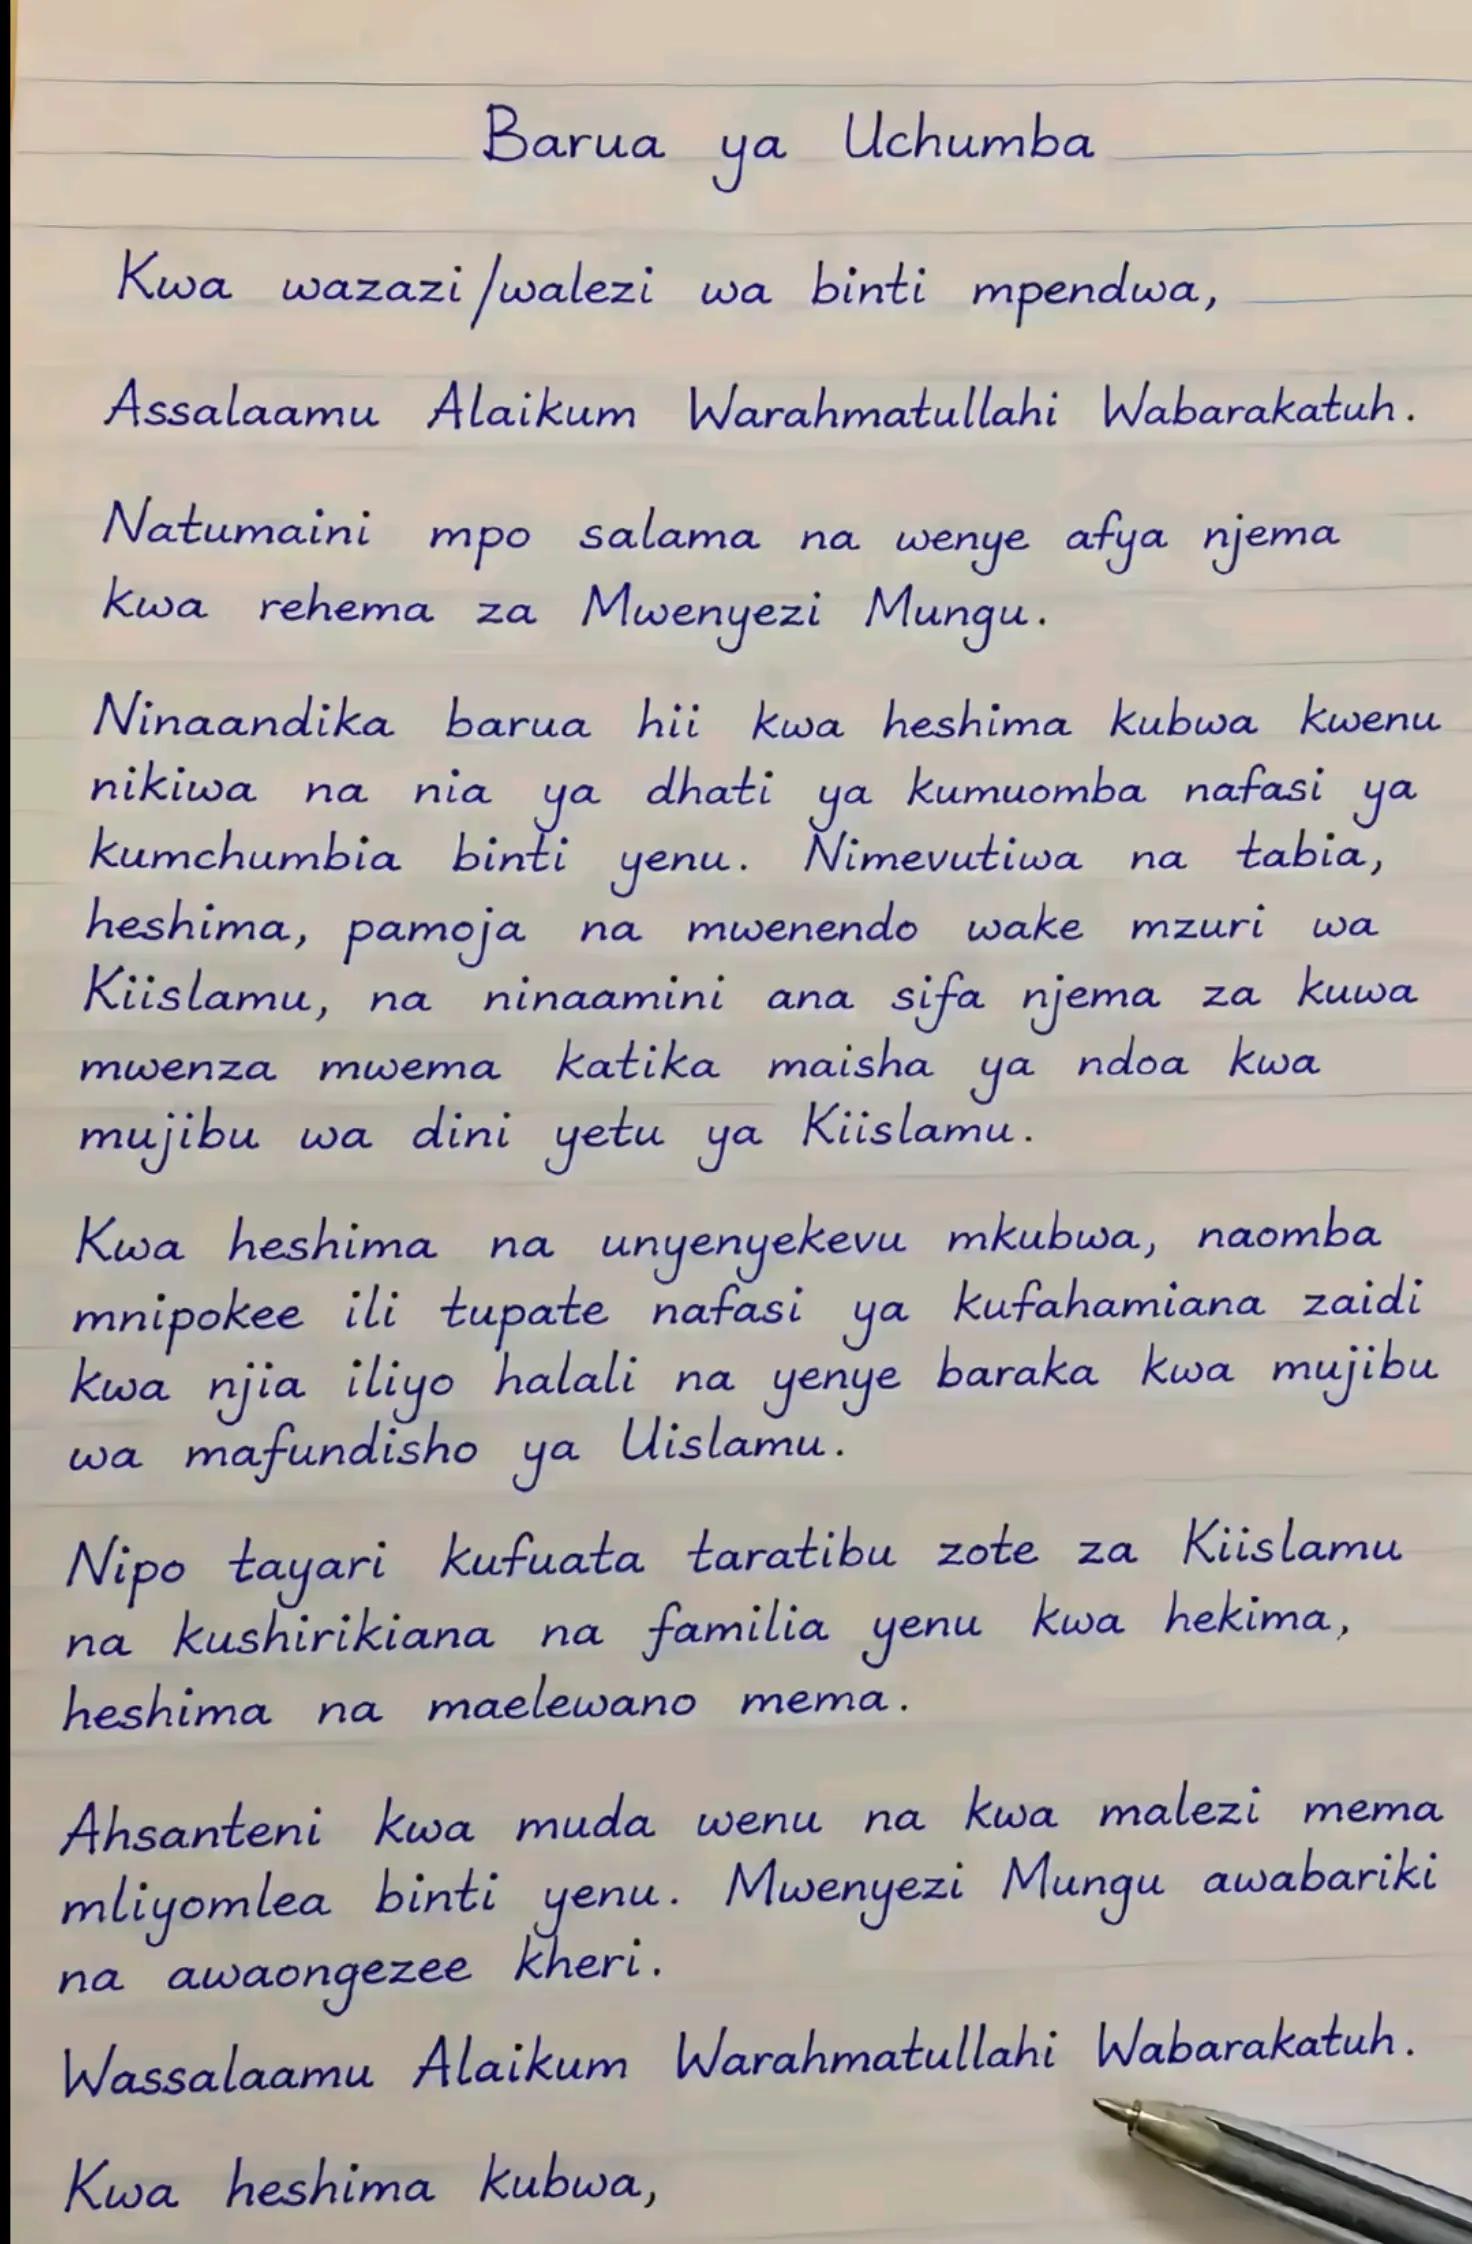 Barua ya Uchumba
Kwa wazazi/walezi wa binti mpendwa,
Assalaamu Alaikum Warahmatullahi Wabarakatuh.
Natumaini mpo salama na wenye afya njema
kwa rehema za Mwenyezi Mungu.
Ninaandika barua hii kwa heshima kubwa kwenu
nikiwa na nia ya dhati ya kumuomba nafasi ya
kumchumbia binti yenu. Nimevutiwa na tabia,
heshima, pamoja na mwenendo wake mzuri wa
Kiislamu, na ninaamini ana sifa njema za kuwa
mwenza mwema katika maisha ya ndoa kwa
mujibu wa dini yetu ya Kiislamu.
Kwa heshima na unyenyekevu mkubwa, naomba
mnipokee ili tupate nafasi ya kufahamiana zaidi
kwa njia iliyo halali na yenye baraka kwa mujibu
wa mafundisho ya Uislamu.
Nipo tayari kufuata taratibu zote za Kiislamu
na kushirikiana na familia yenu kwa hekima,
heshima na maelewano mema.
Ahsanteni kwa muda wenu na kwa malezi mema
mliyomlea binti yenu. Mwenyezi Mungu awabariki
na awaongezee kheri.
Wassalaamu Alaikum Warahmatullahi Wabarakatuh.
Kwa heshima kubwa,